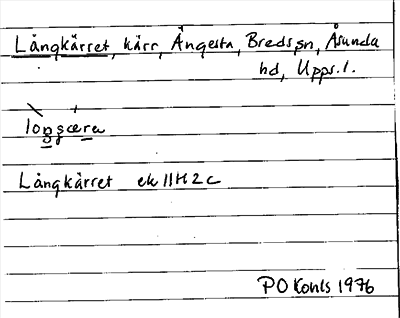 Långkärret, kärr, Ängesta, Breds sn, Åsunda
hd, Upps. l.
Långkärret ek 11H2c
PO Konls 1976